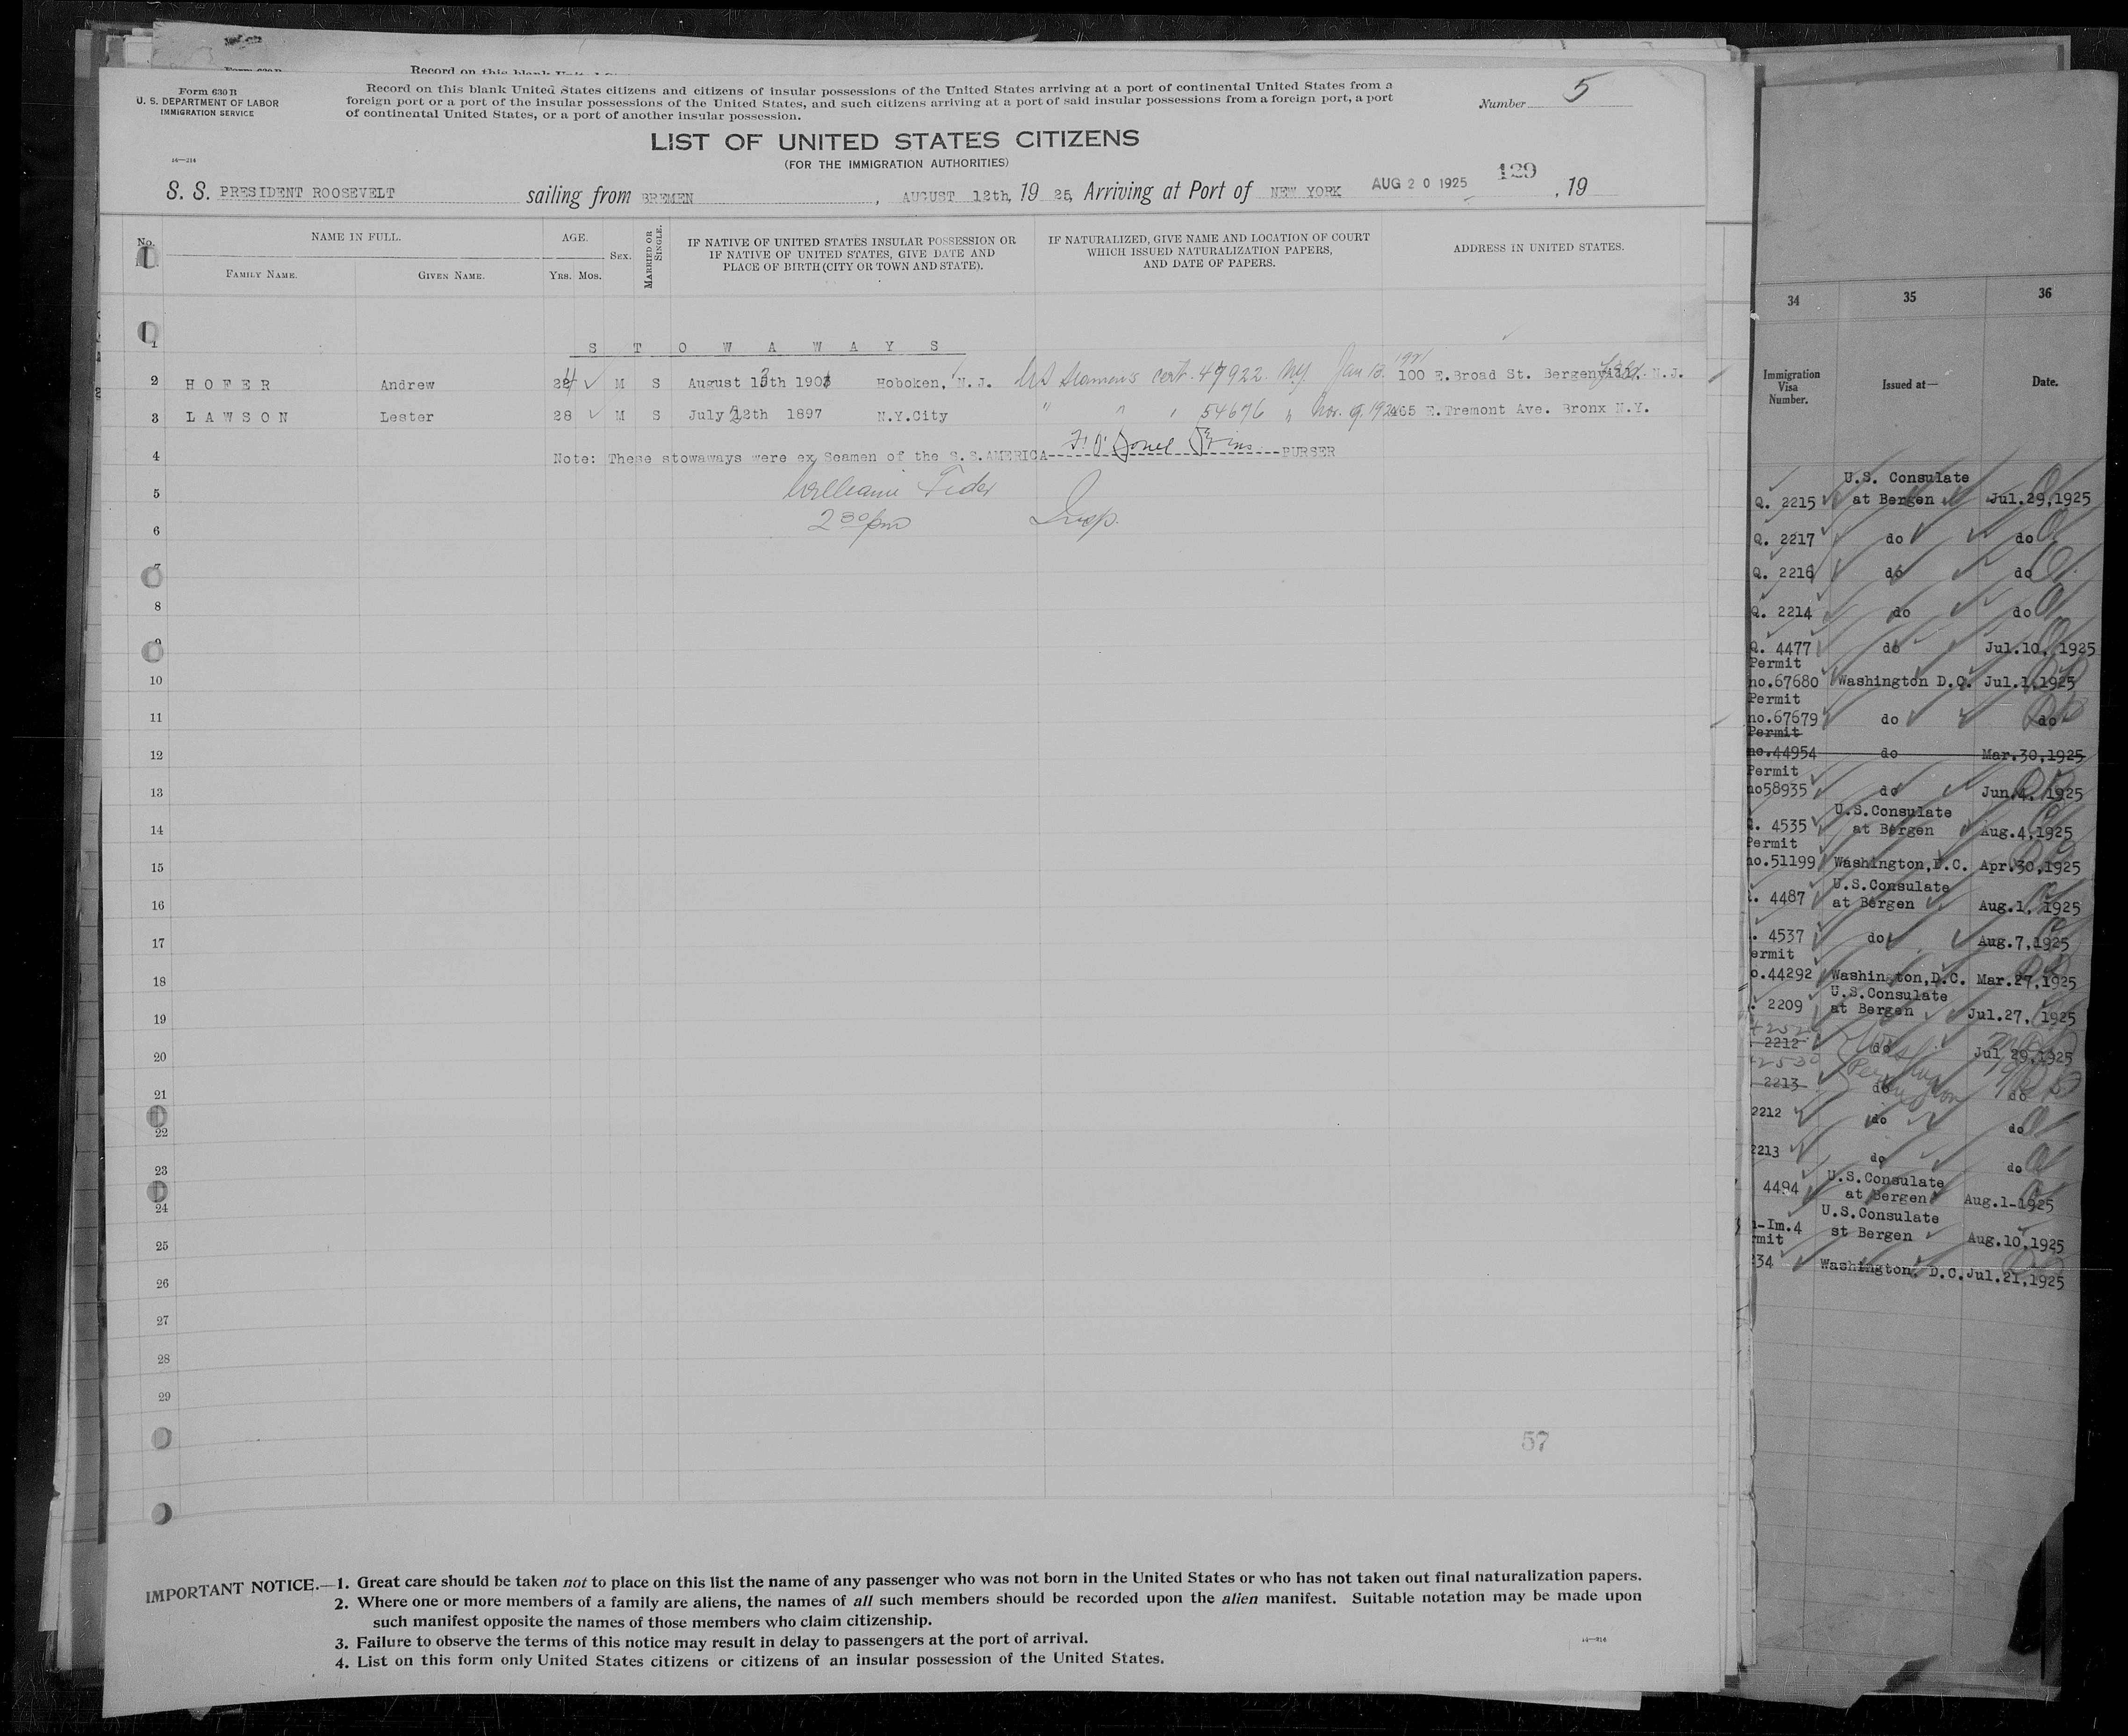 Record on this blank
Form 630 B
U. S. DEPARTMENT OF LABOR
IMMIGRATION SERVICE
Record on this blank United States citizens and citizens of insular possessions of the United States arriving at a port of continental United States from a
foreign port or a port of the insular possessions of the United States, and such citizens arriving at a port of said insular possessions from a foreign port, a port
of continental United States, or a port of another insular possession.
Number 5
LIST OF UNITED STATES CITIZENS
(FOR THE IMMIGRATION AUTHORITIES)
14—214
129
S. S. PRESIDENT ROOSEVELT sailing from BREMEN , AUGUST 12th, 19 25, Arriving at Port of NEW YORK AUG 20 1925 , 19
No. NAME IN FULL. AGE. SEX. MARRIED OR SINGLE. IF NATIVE OF UNITED STATES INSULAR POSSESSION OR IF NATIVE OF UNITED STATES, GIVE DATE AND PLACE OF BIRTH (CITY OR TOWN AND STATE). IF NATURALIZED, GIVE NAME AND LOCATION OF COURT WHICH ISSUED NATURALIZATION PAPERS, AND DATE OF PAPERS. ADDRESS IN UNITED STATES.
FAMILY NAME. GIVEN NAME. YRS. MOS.
1 S T O W A W A Y S
2 HOFER Andrew 24 M S August 13th 1901 Hoboken, N.J. US Seaman's cert. 47922 NY Jan 13. 1921 100 E.Broad St. N.J.
3 LAWSON Lester 28 M S July 12th 1897 N.Y.City " " " 54676 " Nov. 9. 1924 E.Tremont Ave. Bronx N.Y.
4 Note: These stowaways were ex Seamen of the S.S.AMERICA PURSER
5 William
6 2 30 pm Insp.
7
8
9
10
11
12
13
14
15
16
17
18
19
20
21
22
23
24
25
26
27
28
29
57
IMPORTANT NOTICE.—1. Great care should be taken not to place on this list the name of any passenger who was not born in the United States or who has not taken out final naturalization papers.
2. Where one or more members of a family are aliens, the names of all such members should be recorded upon the alien manifest. Suitable notation may be made upon
such manifest opposite the names of those members who claim citizenship.
3. Failure to observe the terms of this notice may result in delay to passengers at the port of arrival.
4. List on this form only United States citizens or citizens of an insular possession of the United States.
14—214
34 35 36
Immigration Visa Number. Issued at— Date.
Q. 2215 U.S. Consulate at Bergen Jul.29,1925
Q. 2217 do do
Q. 2216 do do
Q. 2214 do do
Q. 4477 do Jul.10, 1925
Permit
no.67680 Washington D.C. Jul.1,1925
Permit
no.67679 do do
Permit
no.44954 do Mar.30,1925
Permit
no58935 do Jun.4, 1925
4535 U.S.Consulate at Bergen Aug.4,1925
Permit
no.51199 Washington,D.C. Apr.30,1925
4487 U.S.Consulate at Bergen Aug.1, 1925
4537 do Aug.7,1925
ermit
o.44292 Washington,D.C. Mar.27,1925
2209 U.S.Consulate at Bergen Jul.27, 1925
2212 do Jul 29,1925
2213 do do
2212 do do
2213 do do
4494 U.S.Consulate at Bergen Aug.1-1925
-Im.4 U.S.Consulate st Bergen Aug.10,1925
rmit
34 Washington, D.C. Jul.21,1925